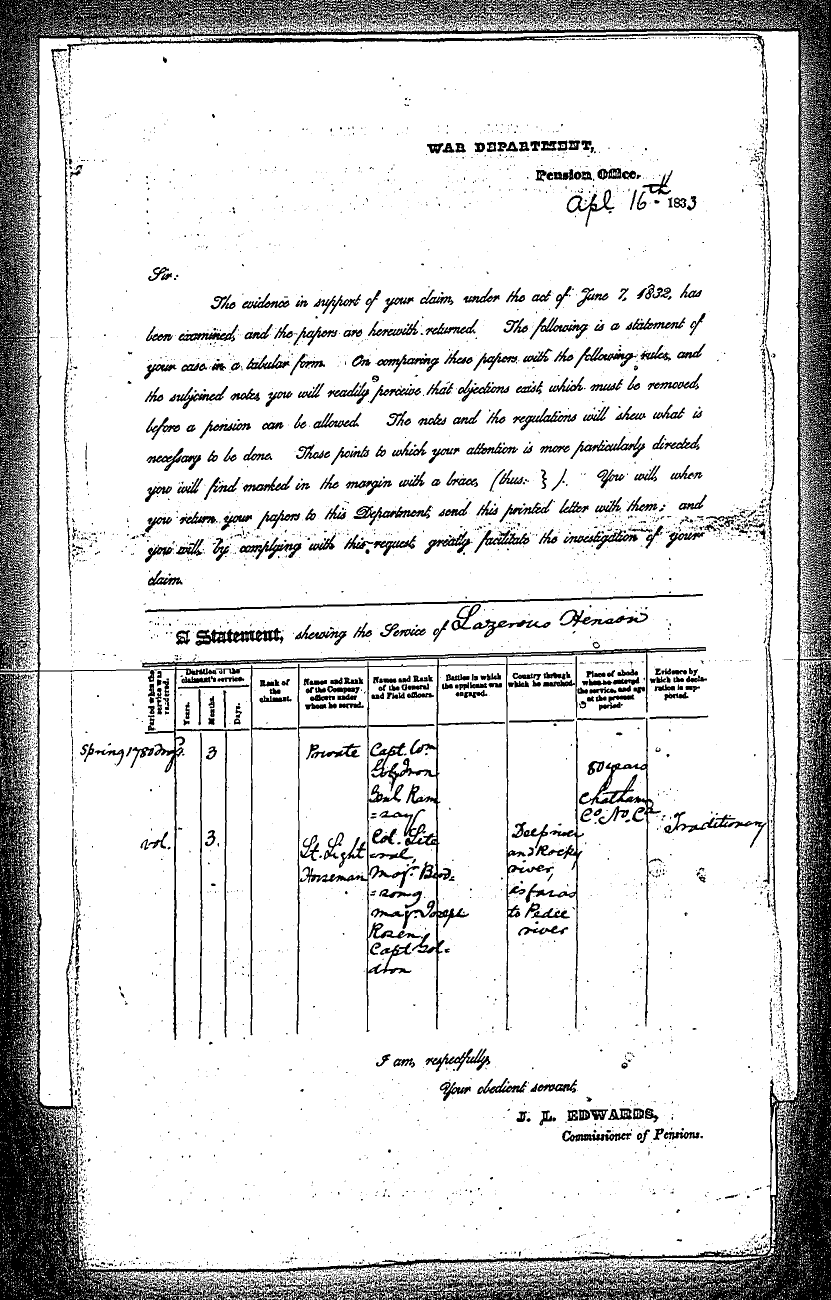 WAR DEPARTMENT,
Pension Office.
Apl 16th 1833
Sir:
The evidence in support of your claim, under the act of June 7, 1832, has
been examined, and the papers are herewith returned. The following is a statement of
your case in a tabular form. On comparing these papers with the following rules, and
the subjoined notes, you will readily perceive that objections exist, which must be removed,
before a pension can be allowed. The notes and the regulations will shew what is
necessary to be done. Those points to which your attention is more particularly directed,
you will find marked in the margin with a brace, (thus: } ). You will, when
you return your papers to this Department, send this printed letter with them; and
you will, by complying with this request, greatly facilitate the investigation of your
claim.
A Statement, shewing the Service of Lazerous Henson
Period when the service was rendered.
Duration of the claimant's service.
Years.
Months.
Days.
Rank of the claimant.
Names and Rank of the Company officers under whom he served.
Names and Rank of the General and Field officers.
Battles in which the applicant was engaged.
Country through which he marched.
Place of abode when he entered the service, and age at the present period.
Evidence by which the declaration is supported.
Spring 1780
3
Private
Capt
Genl Ram
=say
80 years
Chatham
Co. No. Ca
Traditionary
vol.
3.
Lt. Light
Horseman
Col. Lite
=ral,
Maj.
maj. Joseph
Rosen,
Capt Gol=
dron
Deep river
and Rocky
river,
as far as
to Pedee
river
I am, respectfully,
Your obedient servant,
J. L. EDWARDS,
Commissioner of Pensions.